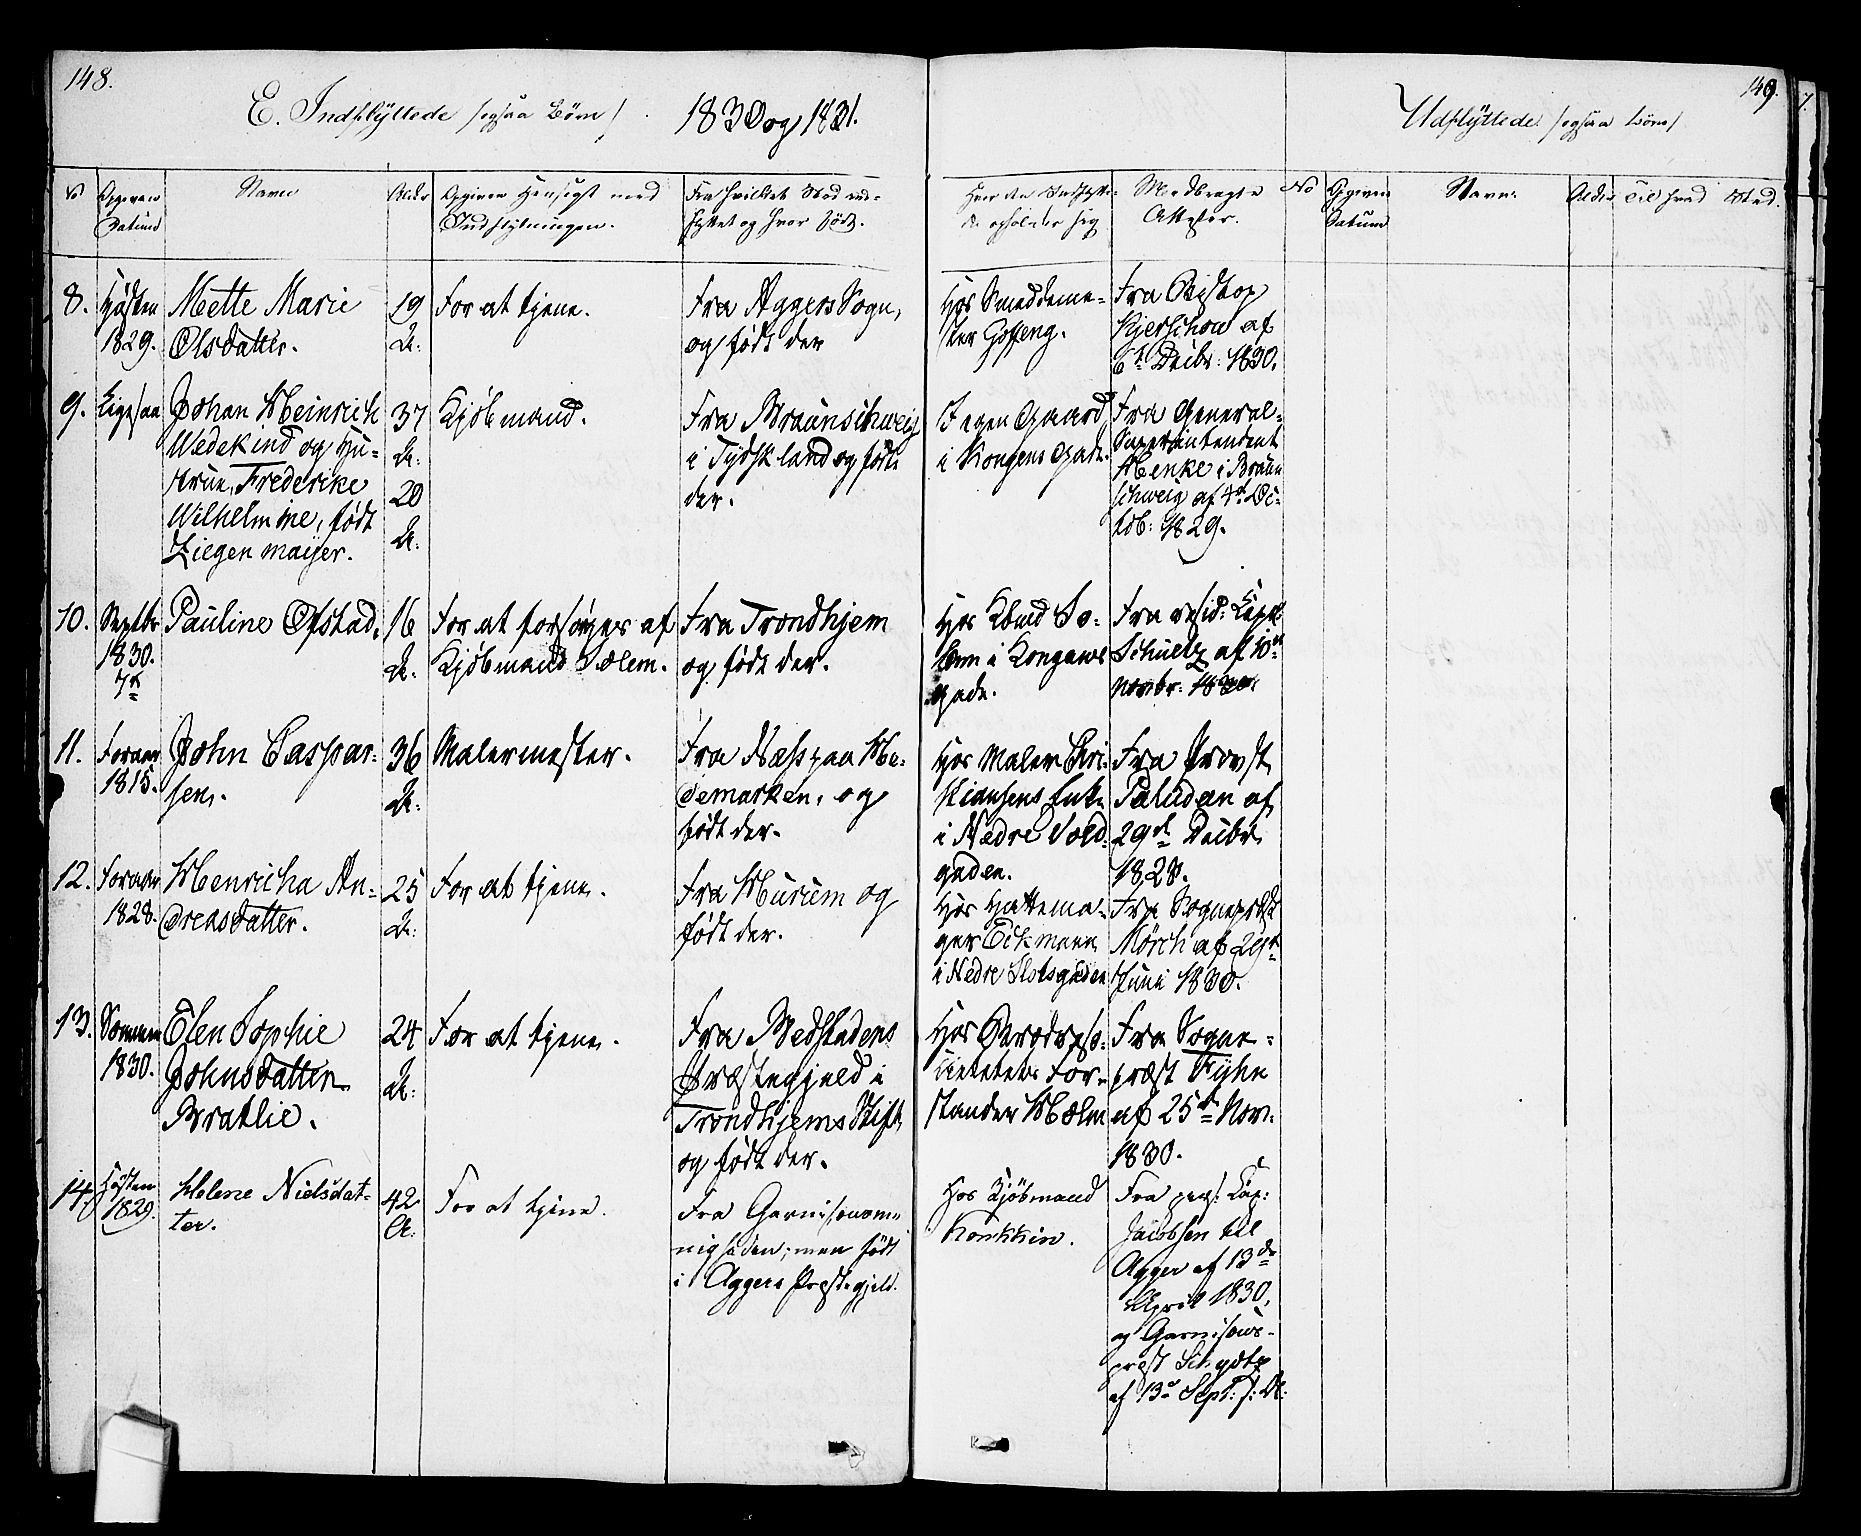 148.
E. Indflyttede /ogsaa Børn/. 1830 og 1831.
No
Opgiven Datum
Navn
Alder
Opgiven Hensigt med
Indflytningen.
Fra hvilket Sted ind-
flyttet og hvor født.
Hvor den Indflytte-
de opholder sig
Medbragte
Attester.
8. Høsten
1829.
Mette Marie
Olsdatter.
19
A:
For at tjene.
Fra Aggers Sogn,
og født der
Hos Smeddeme-
ster
Fra Bishop
Kjerschow af
6t Decbr: 1830.
9. Ligesaa
Johan Heinrich
Wedekind og Hu-
strue, Frederike
Wilhelmine, født
Ziegenmaijer.
37
A:
20
A:
Kjøbmand.
Fra Braunschweig
i Tydskland og født
der.
I egen Gaard
i Kongens Gade.
Fra General-
Superintendent
Henke i Braun
schweig af 4d Oc-
tob: 1829.
10. Septbr
1830.
7d
Pauline Ofstad,
16
A:
For at forsørges af
Kjøbmand Solem.
Fra Trondhjem
og født der.
Hos Kbmd So-
lem i Kongens
gade.
Fra resid: Capl:
Schultz af 10d
Novbr: 1830.
11. Foraar
1815.
John Caspar-
sen.
36
A:
Malermester.
Fra Næs paa He-
demarken, og
født der.
Hos Maler Chri-
stiansens Enke
i Nedre Vold-
gaden.
Fra Provst
Paludan af
29d Decbr
1828.
12. Foraar
1828.
Henricha An-
dreasdatter.
25
A:
For at tjene.
Fra Hurum og
født der.
Hos Hattema-
ger Eckmann
i Nedre Slotsgaden
Fra Sognepræst
Mörch af 29d
Juni 1830.
13. Sommer
1830.
Elen Sophie
Johnsdatter
Bratlie.
24
A:
For at tjene.
Fra Medstadens
Præstegjeld i
Trondhjems Stift,
og født der.
Hos
For-
stander Holm
Fra Sogne-
præst
af 25d Nov.
1830.
14. Høsten
1829.
Helene Nielsdat-
ter.
42
A:
For at tjene.
Fra Garnisonsme-
nigheden; men født
i Aggers Præstegjeld.
Hos Kjøbmand
Fra pers: Cap:
Jacobsen til
Agger af 13de
April 1830,
og Garnisons-
præst
af 13d Sept: s: A:
149.
Udflyttede /ogsaa Børn/
No
Opgiven
Datum
Navn.
Alder
Til hvad Sted.